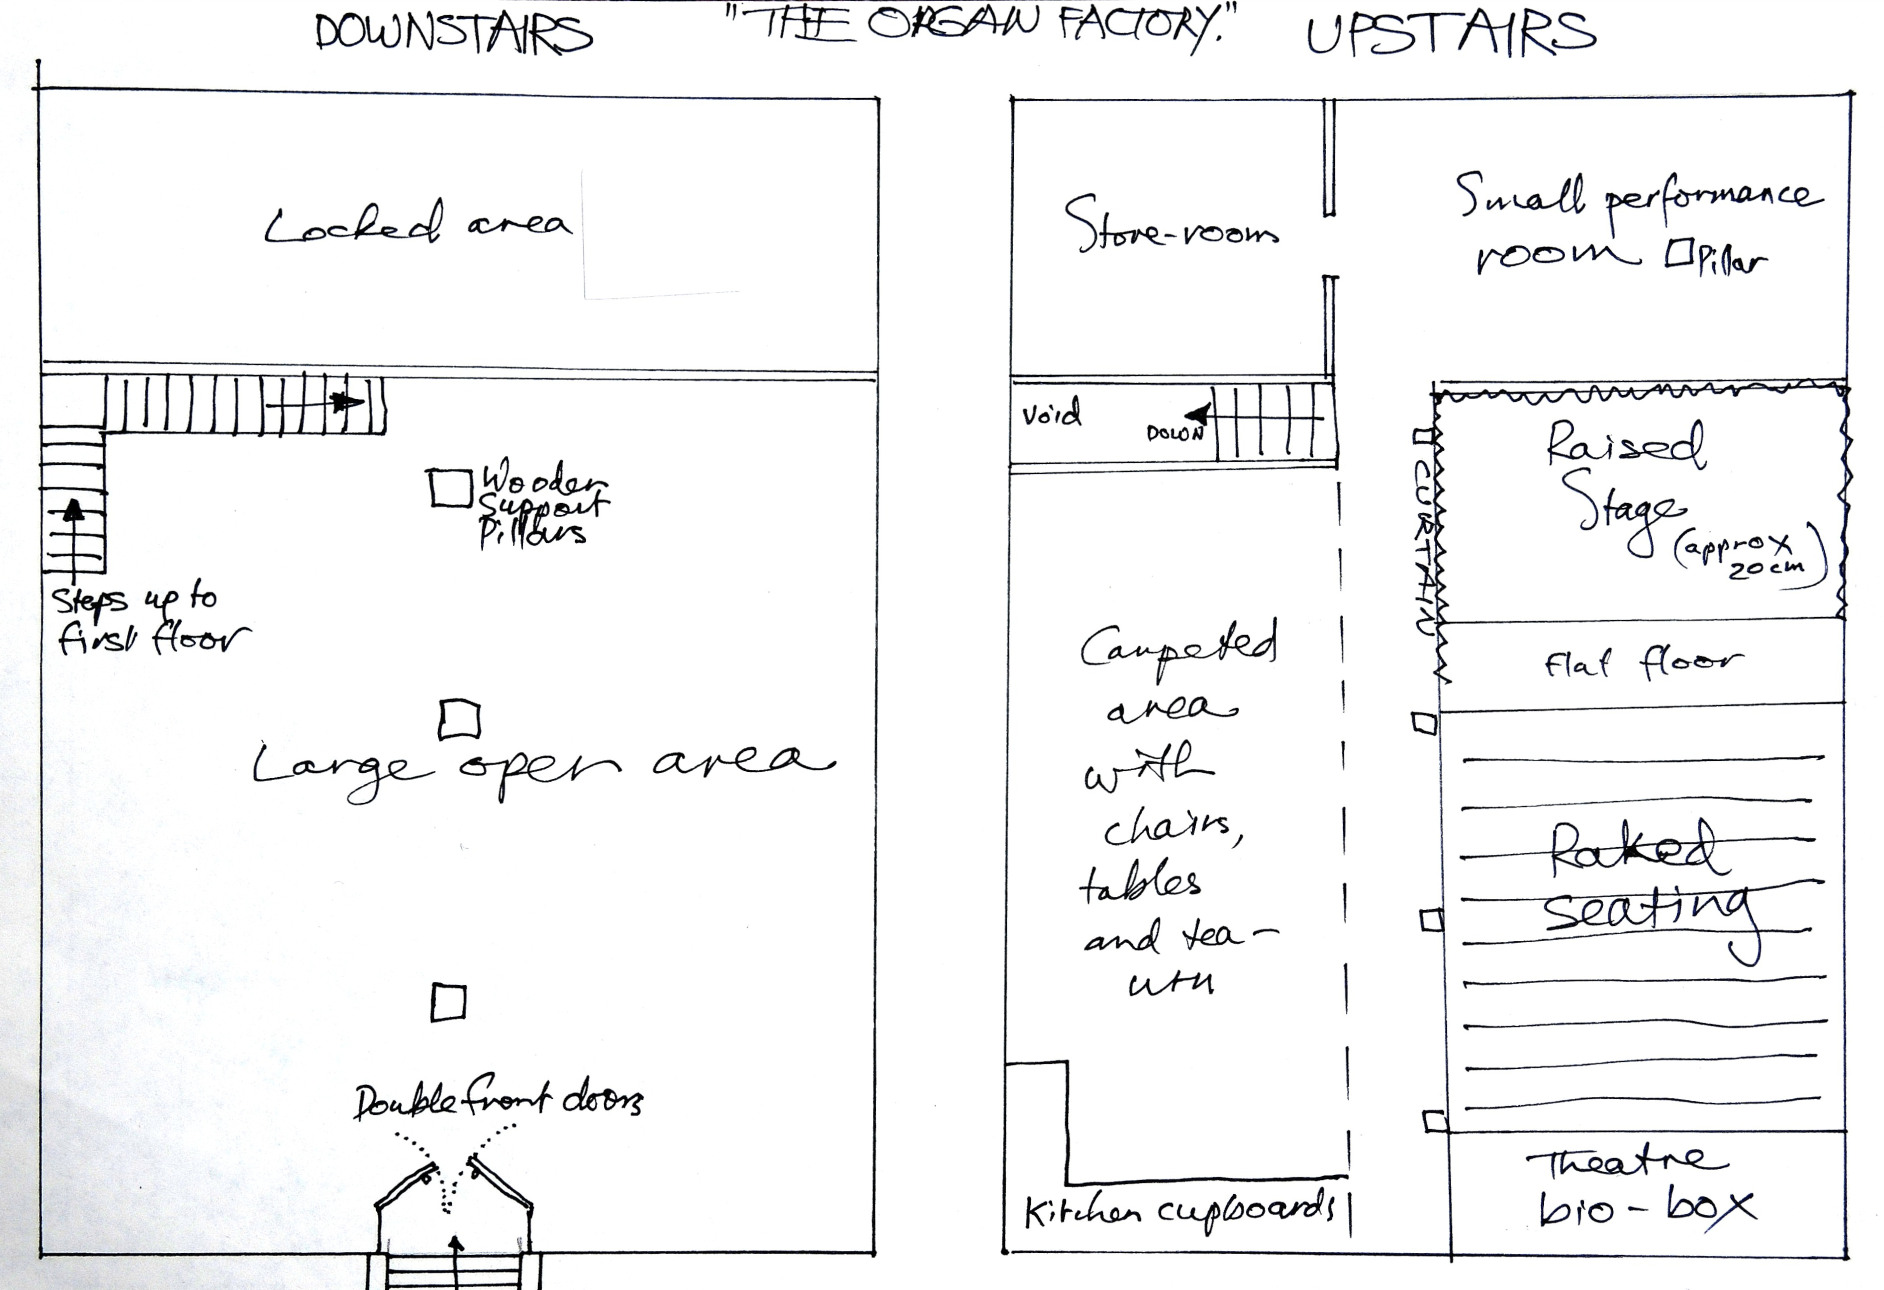 DOWNSTAIRS
"THE ORGAN FACTORY."
UPSTAIRS
Locked area
Wooden
Support
Pillars
Steps up to
first floor
Large open area
Double front doors
Store-room
Small performance
room Pillar
Void
DOWN
CURTAIN
Raised
Stage
(approx
20cm)
Flat floor
Carpeted
area
with
chairs,
tables
and tea-
urn
Raked
seating
Kitchen cupboards
Theatre
bio-box